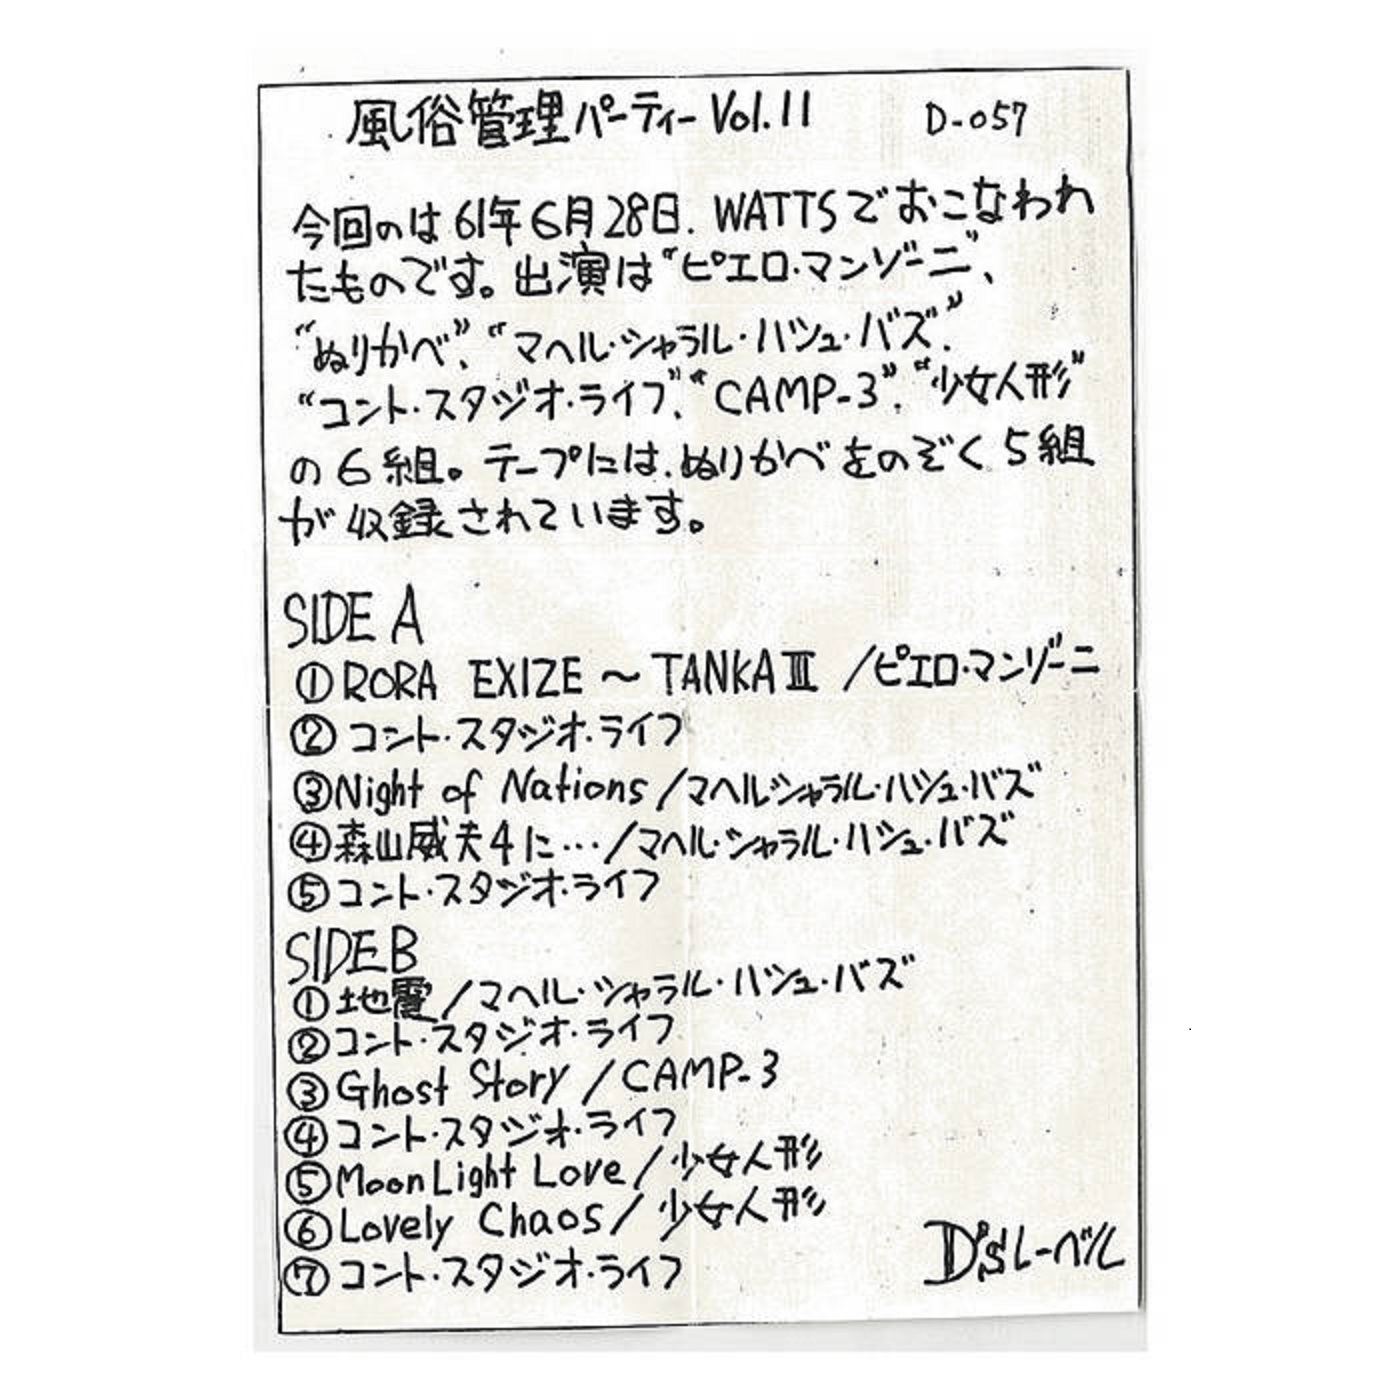 風俗管理パーティー Vol.11 D-057
今回のは61年6月28日. WATTSでおこなわれ
たものです。出演は“ピエロ・マンゾーニ”、
“ぬりかべ”、“マヘル・シャラル・ハシュ・バズ”.
“コント・スタジオ・ライフ”、“CAMP-3”. “少女人形”
の6組。テープには.ぬりかべをのぞく5組
が収録されています。
SIDE A
①RORA EXIZE ～ TANKA Ⅲ /ピエロ・マンゾーニ
②コント・スタジオ・ライフ
③Night of Nations /マヘル・シャラル・ハシュ・バズ
④森山威夫4に…/マヘル・シャラル・ハシュ・バズ
⑤コント・スタジオ・ライフ
SIDE B
①地震/マヘル・シャラル・ハシュ・バズ
②コント・スタジオ・ライフ
③Ghost Story / CAMP-3
④コント・スタジオ・ライフ
⑤Moon Light Love / 少女人形
⑥Lovely Chaos / 少女人形
⑦コント・スタジオ・ライフ
D'sレーベル